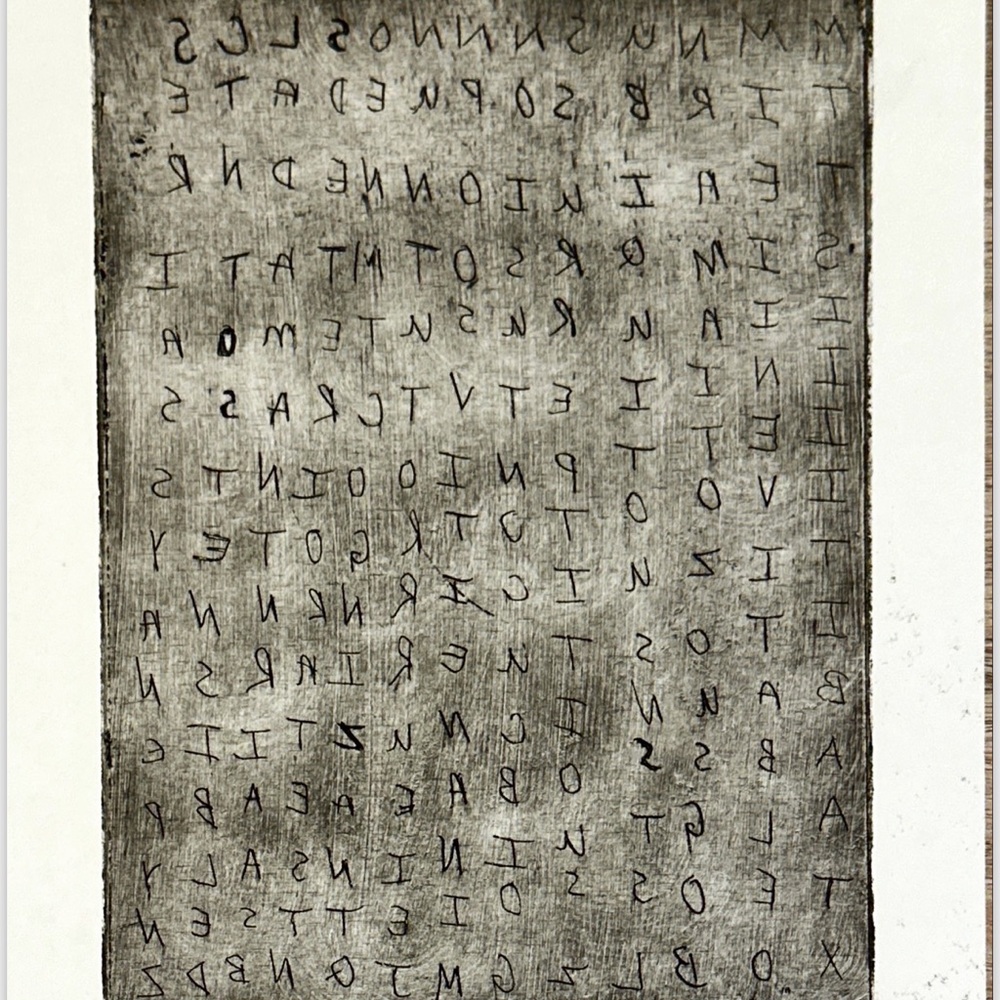 M M N U S N N N O S L C S
T I R B S O P U E D A T E
T E A I U I O N N E D N R
S I M Q R S O T N T A T I
I I A U R U S U T E M O A
I N I I E T V T C R A S S
I E T T P N I O O I N T S
I V O O T O T R G O T E Y
T I Z U I C I R N R N N A
I T O S T U E R I A R S N
B A U N I C N U Z T I I E
A B S S O B A E A E A B P
A L G T U I N I N S A L Y
T E O S S O I E T T S E N
X O B L Z G M T Q N B D Z